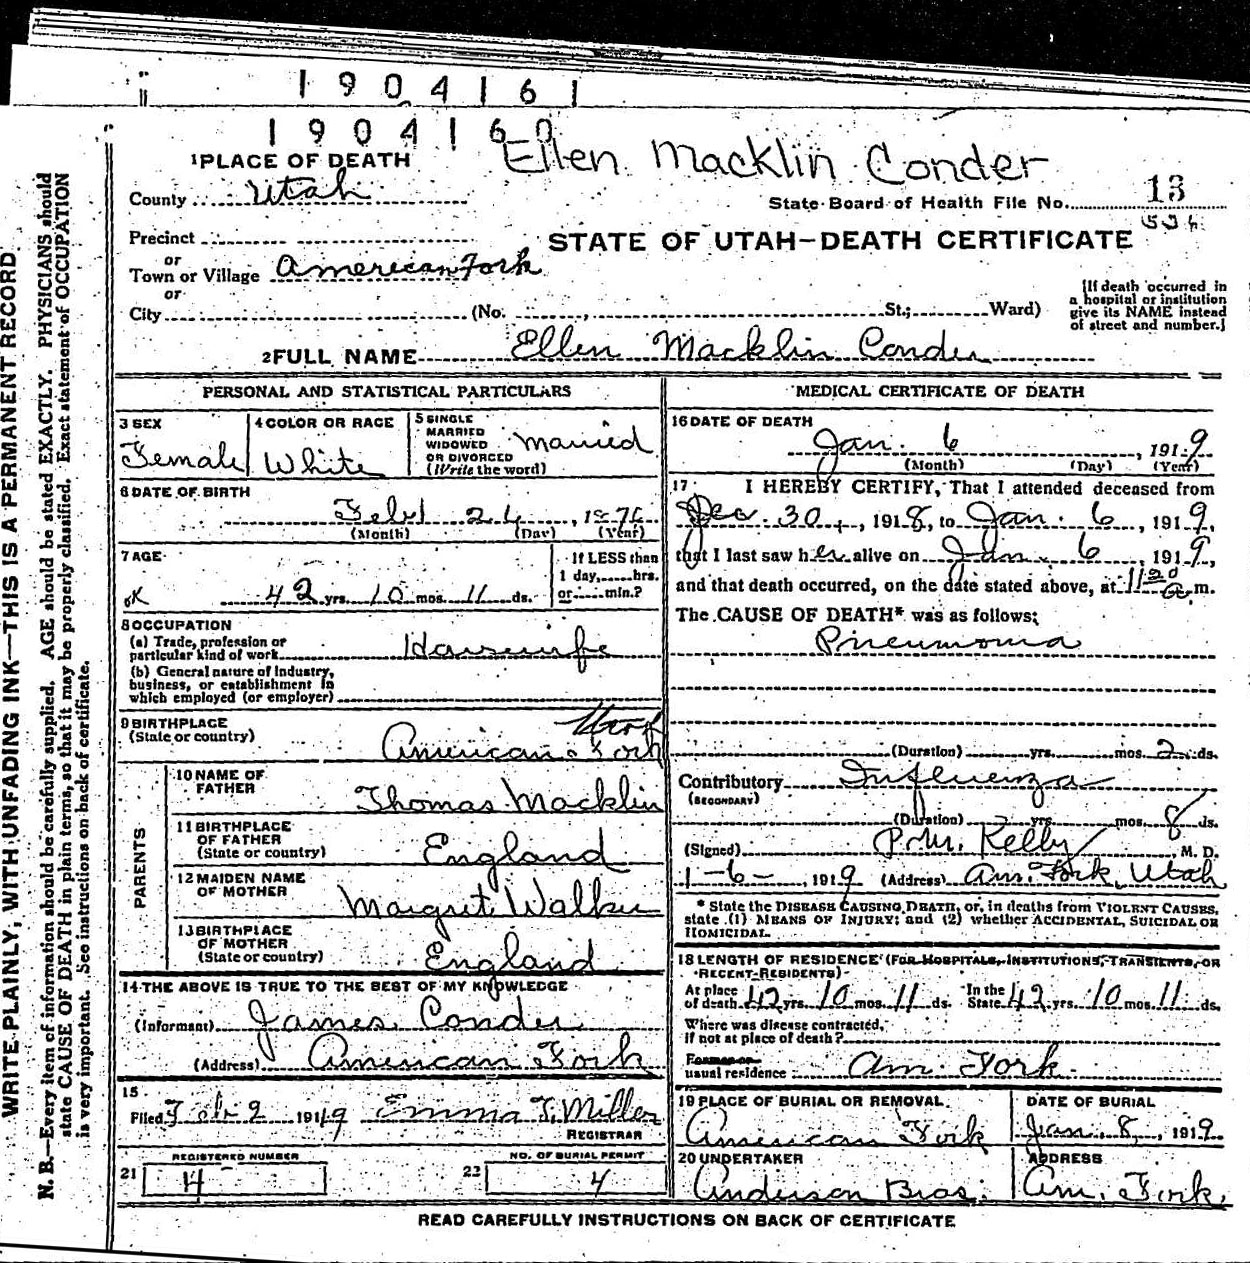 1904161
1904160
Ellen Macklin Conder
1 PLACE OF DEATH
County Utah
State Board of Health File No. 13
Precinct
STATE OF UTAH—DEATH CERTIFICATE
or
Town or Village American Fork
or
City (No. St.; Ward)
[If death occurred in
a hospital or institution
give its NAME instead
of street and number.]
2 FULL NAME Ellen Macklin Conder
PERSONAL AND STATISTICAL PARTICULARS
3 SEX
Female
4 COLOR OR RACE
White
5 SINGLE
MARRIED
WIDOWED
OR DIVORCED
(Write the word)
Married
6 DATE OF BIRTH
Feb 24, 1876
(Month) (Day) (Year)
7 AGE
If LESS than
1 day, hrs.
or min.?
OK 42 yrs. 10 mos. 11 ds.
8 OCCUPATION
(a) Trade, profession or
particular kind of work Housewife
(b) General nature of industry,
business, or establishment in
which employed (or employer)
9 BIRTHPLACE
(State or country)
Utah
American Fork
PARENTS
10 NAME OF
FATHER
Thomas Macklin
11 BIRTHPLACE
OF FATHER
(State or country)
England
12 MAIDEN NAME
OF MOTHER
Margret Walker
13 BIRTHPLACE
OF MOTHER
(State or country)
England
14 THE ABOVE IS TRUE TO THE BEST OF MY KNOWLEDGE
(Informant) James Conder
(Address) American Fork
15
Filed Feb 2 1919 Emma T. Miller
REGISTRAR
REGISTERED NUMBER
21 4
NO. OF BURIAL PERMIT
22 4
MEDICAL CERTIFICATE OF DEATH
16 DATE OF DEATH
Jan. 6, 1919
(Month) (Day) (Year)
17 I HEREBY CERTIFY, That I attended deceased from
Dec. 30, 1918, to Jan. 6, 1919,
that I last saw her alive on Jan. 6, 1919,
and that death occurred, on the date stated above, at 11 20 a m.
The CAUSE OF DEATH* was as follows:
Pneumonia
(Duration) yrs. mos. 2 ds.
Contributory Influenza
(SECONDARY)
(Duration) yrs. mos. 8 ds.
(Signed) P.M. Kelly, M. D.
1-6-, 1919 (Address) Am. Fork, Utah
* State the DISEASE CAUSING DEATH, or, in deaths from VIOLENT CAUSES,
state (1) MEANS OF INJURY; and (2) whether ACCIDENTAL, SUICIDAL OR
HOMICIDAL.
18 LENGTH OF RESIDENCE (FOR HOSPITALS, INSTITUTIONS, TRANSIENTS, OR
RECENT RESIDENTS)
At place
of death 42 yrs. 10 mos. 11 ds. In the
State 42 yrs. 10 mos. 11 ds.
Where was disease contracted,
if not at place of death?
Former or
usual residence Am. Fork
19 PLACE OF BURIAL OR REMOVAL
American Fork
DATE OF BURIAL
Jan. 8, 1919
20 UNDERTAKER
Anderson Bros.
ADDRESS
Am. Fork.
READ CAREFULLY INSTRUCTIONS ON BACK OF CERTIFICATE
WRITE PLAINLY, WITH UNFADING INK—THIS IS A PERMANENT RECORD
N. B.—Every item of information should be carefully supplied. AGE should be stated EXACTLY. PHYSICIANS should
state CAUSE OF DEATH in plain terms, so that it may be properly classified. Exact statement of OCCUPATION
is very important. See instructions on back of certificate.